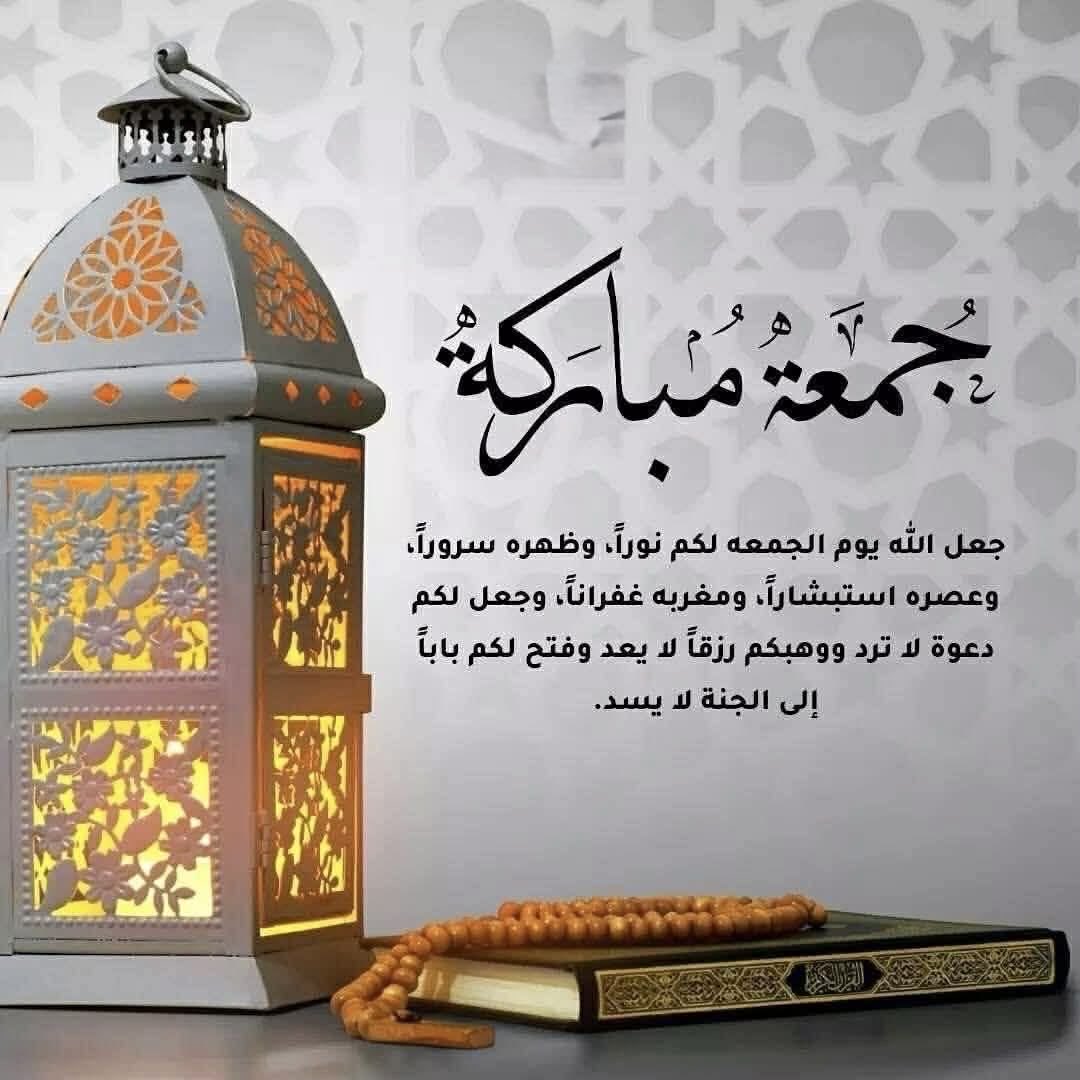 جُمعَةٌ مُباركَةٌ
جعل الله يوم الجمعه لكم نوراً، وظهره سروراً،
وعصره استبشاراً، ومغربه غفراناً، وجعل لكم
دعوة لا ترد ووهبكم رزقاً لا يعد وفتح لكم باباً
إلى الجنة لا يسد.
القرآن الكريم